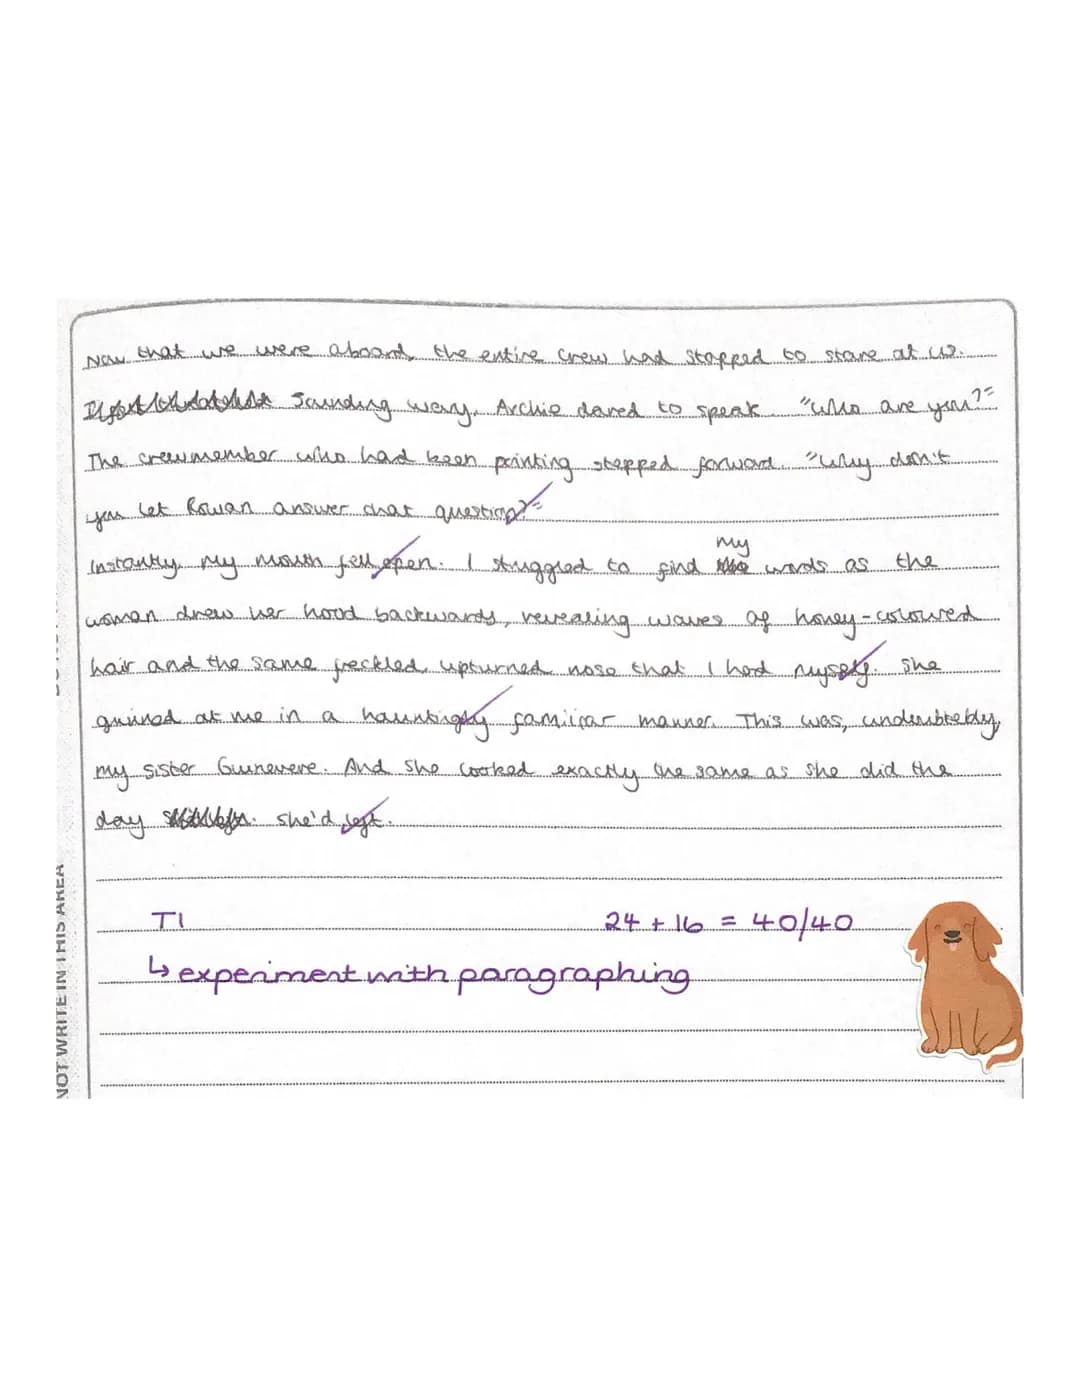 Now that we were aboard, the entire crew had stopped to stare at us.
Sounding wary, Archie dared to speak. "Who are you?"
The crewmember who had been pointing stepped forward. "Why don't
you let Rowan answer that question?"
Instantly, my mouth fell open. I struggled to find my words as the
woman drew her hood backwards, revealing waves of honey-coloured
hair and the same freckled, upturned nose that I had myself. She
grinned at me in a hauntingly familiar manner. This was, undoubtebly,
my sister Guinevere. And she looked exactly the same as she did the
day she'd left.
T1 24 + 16 = 40/40
↳ experiment with paragraphing
NOT WRITE IN THIS AREA